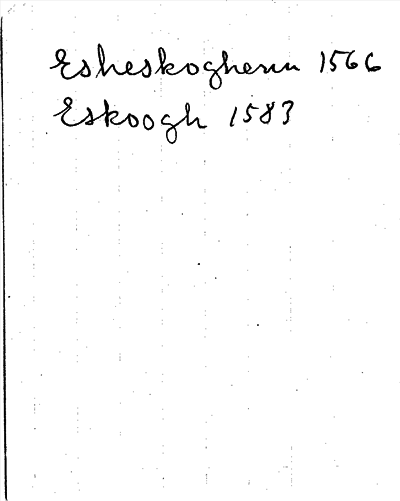 Esheskoghenn 1566
Eskoogh 1583